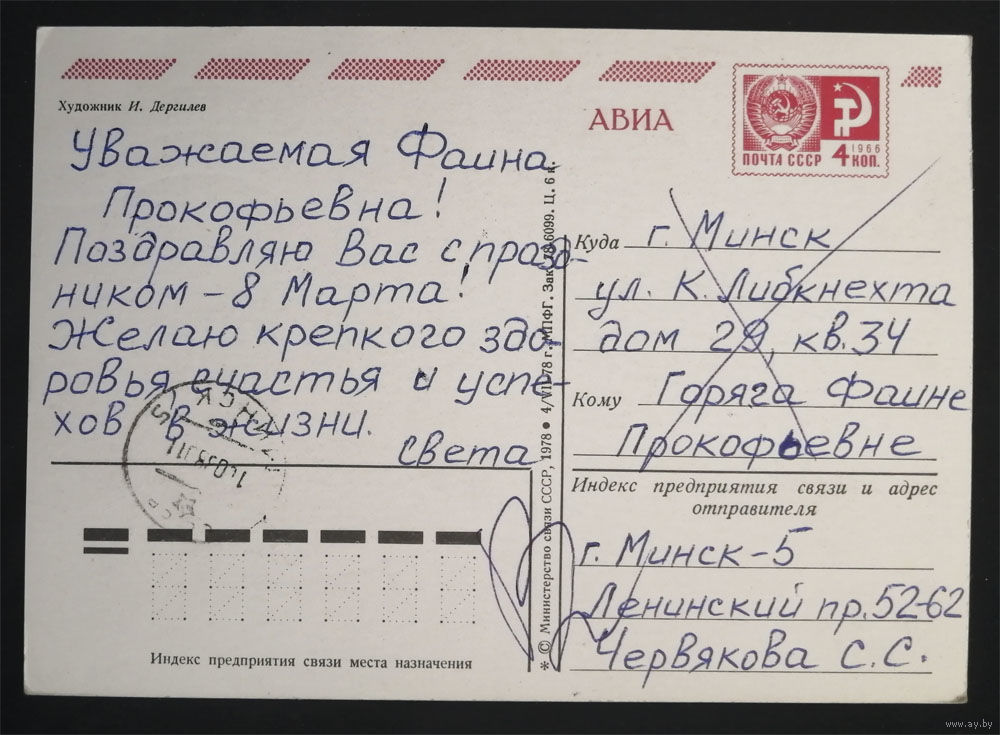 Художник И. Дергилев
АВИА
1966
ПОЧТА СССР 4 КОП.
Уважаемая Фаина
Прокофьевна!
Поздравляю Вас с празд-
ником - 8 Марта!
Желаю крепкого здо-
ровья, счастья и успе-
хов в жизни.
Света
МИНСК
СССР
Индекс предприятия связи места назначения
* © Министерство связи СССР, 1978 • 4/VII-78 г. МПФГ. Зак. 78-6099. Ц. 6 к.
Куда г. Минск
ул. К. Либкнехта
дом 29, кв. 34
Кому Горяга Фаине
Прокофьевне
Индекс предприятия связи и адрес
отправителя
г. Минск-5
Ленинский пр. 52-62
Червякова С.С.
www.ay.by